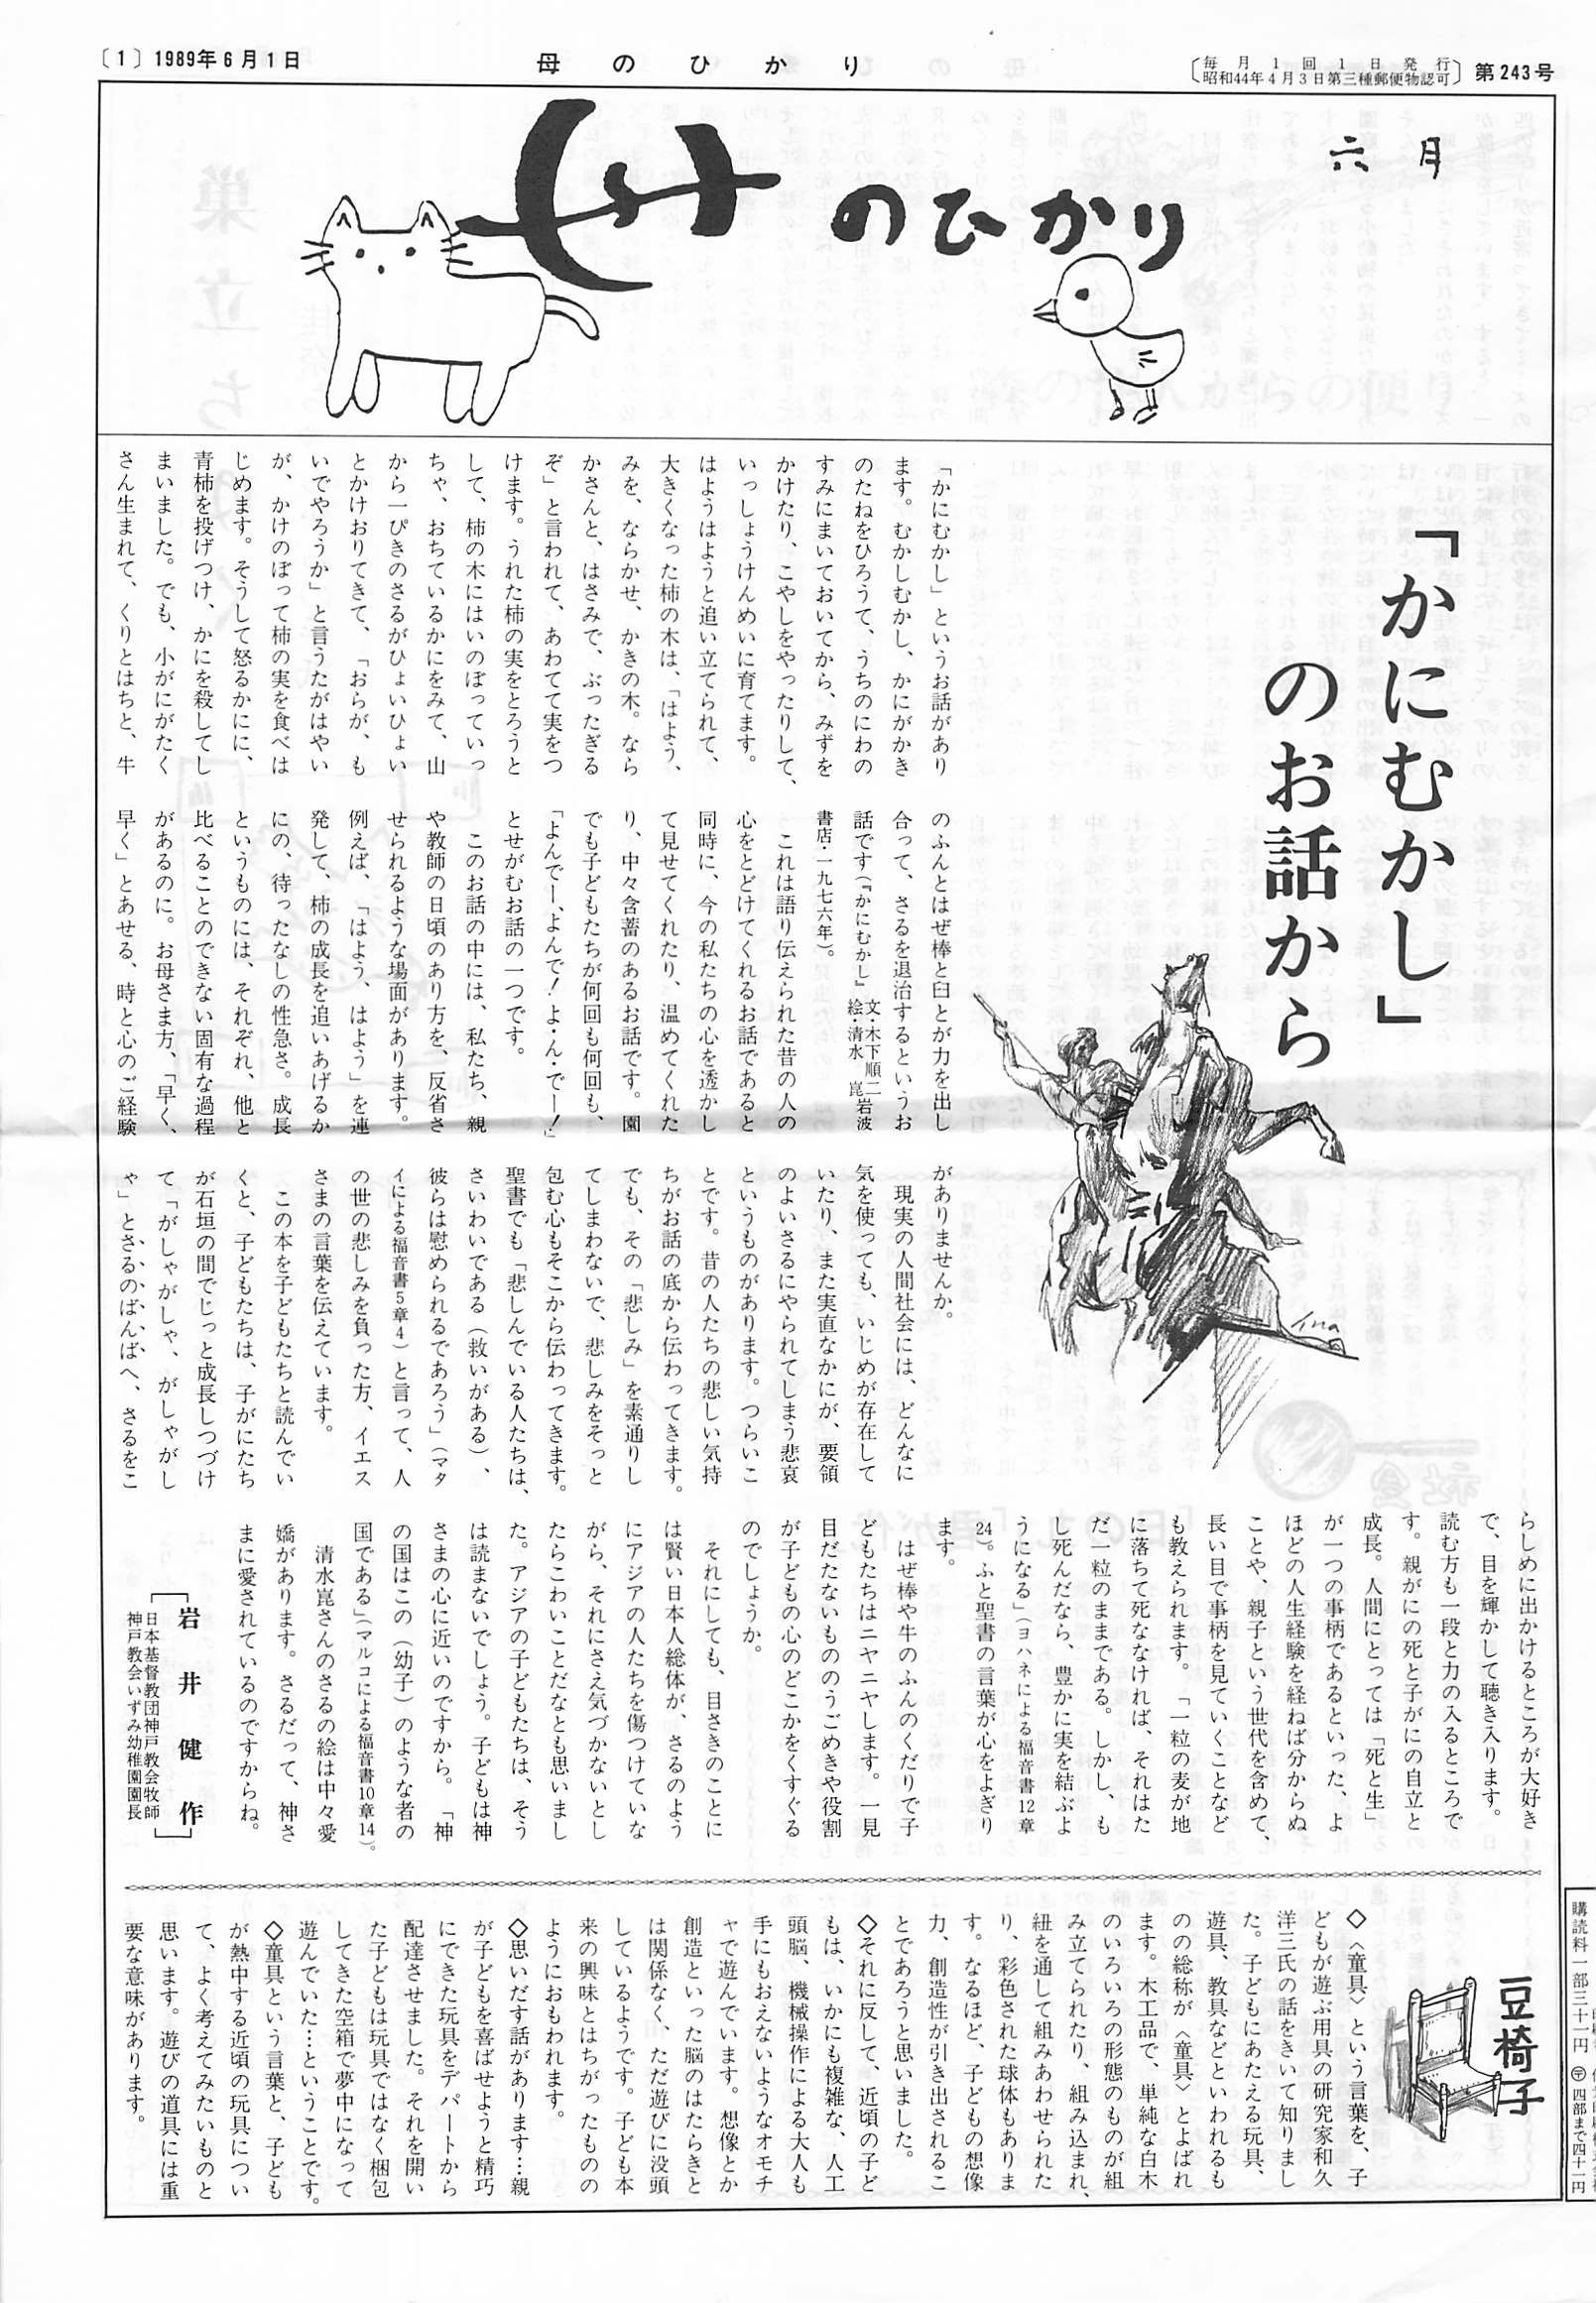 〔1〕1989年6月1日
母のひかり
〔毎月1回1日発行
昭和44年4月3日第三種郵便物認可〕
第243号
六月
母のひかり
「かにむかし」
のお話から
「かにむかし」というお話があり
ます。むかしむかし、かにがかき
のたねをひろうて、うちのにわの
すみにまいておいてから、みずを
かけたり、こやしをやったりして、
いっしょうけんめいに育てます。
はようはようと追い立てられて、
大きくなった柿の木は、「はよう、
みを、ならかせ、かきの木。なら
かさんと、はさみで、ぶったぎる
ぞ」と言われて、あわてて実をつ
けます。うれた柿の実をとろうと
して、柿の木にはいのぼっていっ
ちゃ、おちているかにをみて、山
から一ぴきのさるがひょいひょい
とかけおりてきて、「おらが、も
いでやろうか」と言うたがはやい
が、かけのぼって柿の実を食べは
じめます。そうして怒るかにに、
青柿を投げつけ、かにを殺してし
まいました。でも、小がにがたく
さん生まれて、くりとはちと、牛
のふんとはぜ棒と臼とが力を出し
合って、さるを退治するというお
話です(『かにむかし』文・木下順二 絵・清水 崑 岩波
書店・一九七六年)。
これは語り伝えられた昔の人の
心をとどけてくれるお話であると
同時に、今の私たちの心を透かし
て見せてくれたり、温めてくれた
り、中々含蓄のあるお話です。園
でも子どもたちが何回も何回も、
「よんでー、よんで!よ・ん・でー!」
とせがむお話の一つです。
このお話の中には、私たち、親
や教師の日頃のあり方を、反省さ
せられるような場面があります。
例えば、「はよう、はよう」を連
発して、柿の成長を追いあげるか
にの、待ったなしの性急さ。成長
というものには、それぞれ、他と
比べることのできない固有な過程
があるのに。お母さま方、「早く、
早く」とあせる、時と心のご経験
がありませんか。
現実の人間社会には、どんなに
気を使っても、いじめが存在して
いたり、また実直なかにが、要領
のよいさるにやられてしまう悲哀
というものがあります。つらいこ
とです。昔の人たちの悲しい気持
ちがお話の底から伝わってきます。
でも、その「悲しみ」を素通りし
てしまわないで、悲しみをそっと
包む心もそこから伝わってきます。
聖書でも「悲しんでいる人たちは、
さいわいである(救いがある)、
彼らは慰められるであろう」(マタ
イによる福音書5章4)と言って、人
の世の悲しみを負った方、イエス
さまの言葉を伝えています。
この本を子どもたちと読んでい
くと、子どもたちは、子がにたち
が石垣の間でじっと成長しつづけ
て「がしゃがしゃ、がしゃがし
ゃ」とさるのばんばへ、さるをこ
らしめに出かけるところが大好き
で、目を輝かして聴き入ります。
読む方も一段と力の入るところで
す。親がにの死と子がにの自立と
成長。人間にとっては「死と生」
が一つの事柄であるといった、よ
ほどの人生経験を経ねば分からぬ
ことや、親子という世代を含めて、
長い目で事柄を見ていくことなど
も教えられます。「一粒の麦が地
に落ちて死ななければ、それはた
だ一粒のままである。しかし、も
し死んだなら、豊かに実を結ぶよ
うになる」(ヨハネによる福音書12章
24)。ふと聖書の言葉が心をよぎり
ます。
はぜ棒や牛のふんのくだりで子
どもたちはニヤニヤします。一見
目だたないもののうごめきや役割
が子どもの心のどこかをくすぐる
のでしょうか。
それにしても、目さきのことに
は賢い日本人総体が、さるのよう
にアジアの人たちを傷つけていな
がら、それにさえ気づかないとし
たらこわいことだなとも思いまし
た。アジアの子どもたちは、そう
は読まないでしょう。子どもは神
さまの心に近いのですから。「神
の国はこの(幼子)のような者の
国である」(マルコによる福音書10章14)。
清水崑さんのさるの絵は中々愛
嬌があります。さるだって、神さ
まに愛されているのですからね。
岩井健作
日本基督教団神戸教会牧師
神戸教会いずみ幼稚園園長
豆椅子
◇〈童具〉という言葉を、子
どもが遊ぶ用具の研究家和久
洋三氏の話をきいて知りまし
た。子どもにあたえる玩具、
遊具、教具などといわれるも
のの総称が〈童具〉とよばれ
ます。木工品で、単純な白木
のいろいろの形態のものが組
み立てられたり、組み込まれ、
紐を通して組みあわせられた
り、彩色された球体もありま
す。なるほど、子どもの想像
力、創造性が引き出されるこ
とであろうと思いました。
◇それに反して、近頃の子ど
もは、いかにも複雑な、人工
頭脳、機械操作による大人も
手にもおえないようなオモチ
ャで遊んでいます。想像とか
創造といった脳のはたらきと
は関係なく、ただ遊びに没頭
しているようです。子ども本
来の興味とはちがったものの
ようにおもわれます。
◇思いだす話があります…親
が子どもを喜ばせようと精巧
にできた玩具をデパートから
配達させました。それを開い
た子どもは玩具ではなく梱包
してきた空箱で夢中になって
遊んでいた…ということです。
◇童具という言葉と、子ども
が熱中する近頃の玩具につい
て、よく考えてみたいものと
思います。遊びの道具には重
要な意味があります。
購読料一部三十一円 〒四部まで四十一円